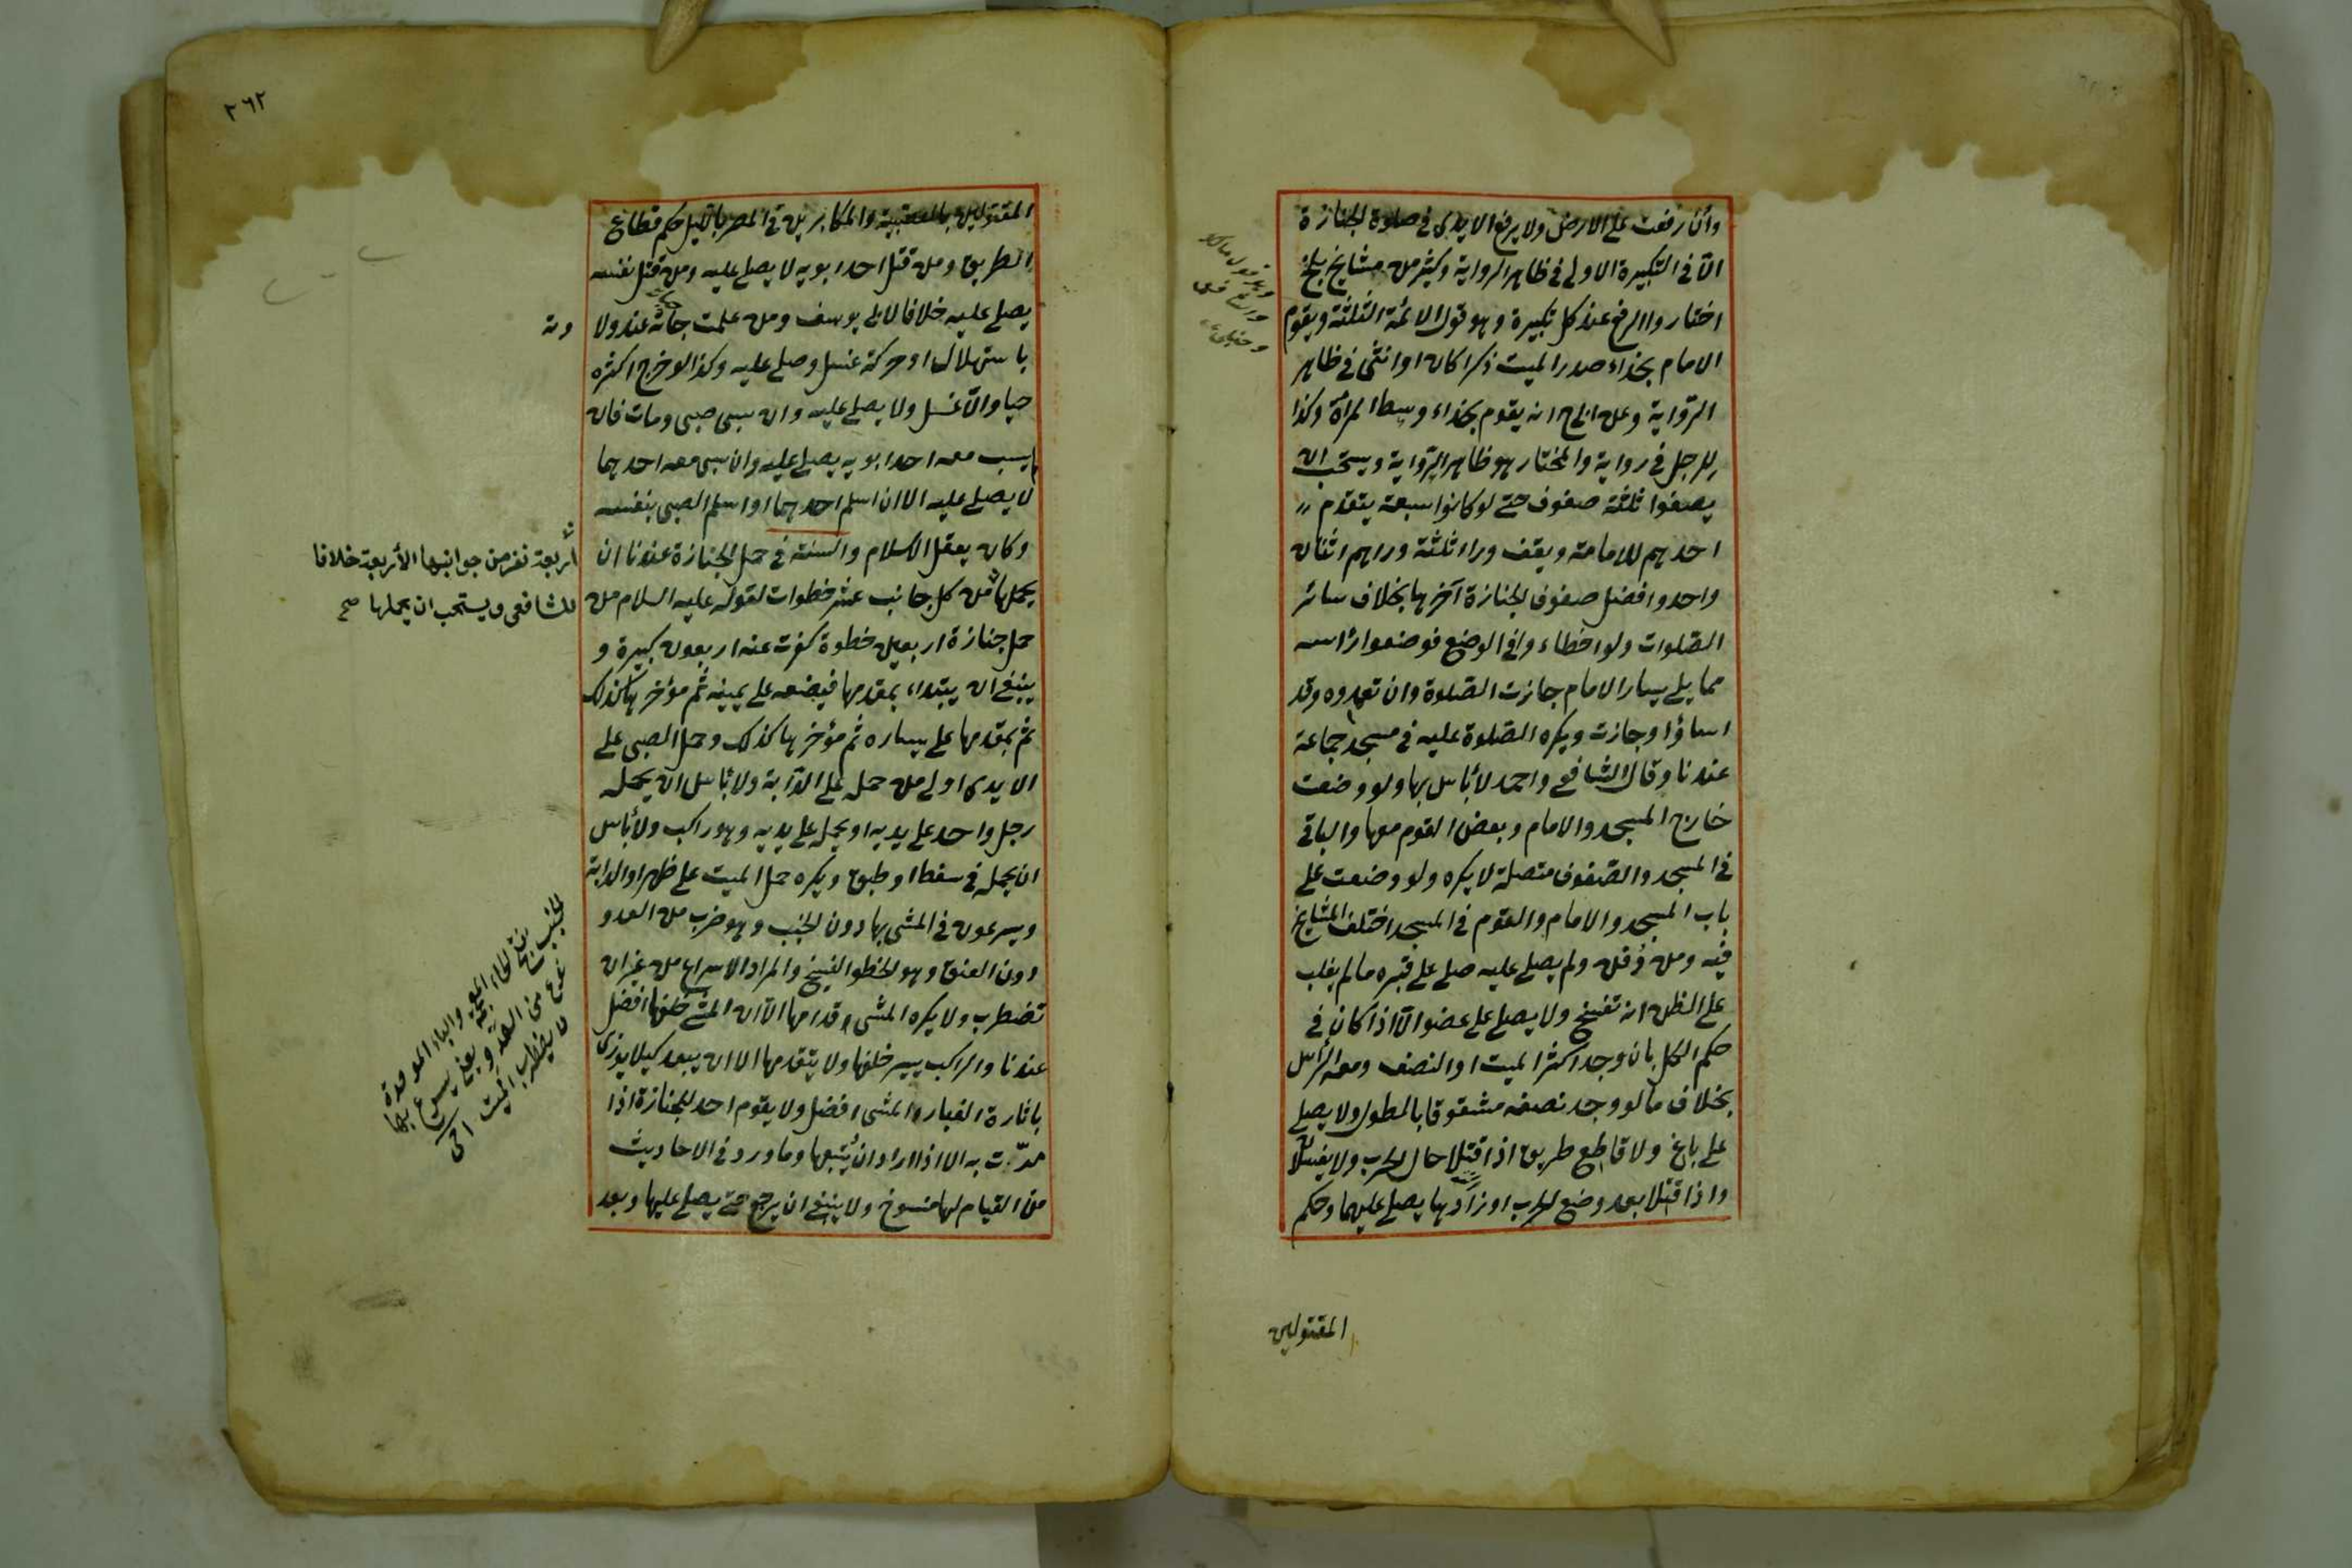 وان رفعت على الارض ولا يرفع الايدى فى صلوة الجنازة
الّا فى التكبيرة الاولى فى ظاهر الرواية وكثير من مشايخ بلخ
اختاروا الرفع عند كل تكبيرة وهو قول الائمة الثلثة ويقوم
الامام بحذاء صدر الميت ذكرا كان او انثى فى ظاهر
الرّواية وعن ابى ح انه يقوم بحذاء وسط المرأة وكذا
للرجل فى رواية والمختار هو ظاهر الرّواية ويستحب ان
يصفوا ثلثة صفوف حتى لو كانوا سبعة يتقدم
احدهم للامامة ويقف وراء ثلثة وراهم اثنان
واحد وافضل صفوف الجنازة آخرها بخلاف سائر
الصّلوات ولو اخطاء وافى الوضع فوضعوا رأسه
مما يلى يسار الامام جازت الصّلوة وان تعمدوه وقد
اساؤا وجازت ويكره الصّلوة عليه فى مسجد جماعة
عندنا وقال الشافعى واحمد لا بأس بها ولو وضعت
خارج المسجد والامام وبعض القوم معها والباقى
فى المسجد والصّفوف متصلة لا يكره ولو وضعت على
باب المسجد والامام والقوم فى المسجد اختلف المشايخ
فيه ومن دُفن ولم يصلى عليه صلى على قبره مالم يغلب
على الظن انه تفسخ ولا يصلى على عضو الّا اذا كان فى
حكم الكل بان وجد اكثر الميت او النصف ومعه الرأس
بخلاف ما لو وجد نصفه مشقوقا بالطول ولا يصلى
على باغ ولا قاطع طريق اذا قتلا حال الحرب ولا يغسلا
واذا قتلا بعد وضع الحرب اوزارها يصلى عليهما وحكم
المقتولين
وهو قول مالك
والشافعى
٢٦٢
المقتولين بالعصبية والمكابرين فى المصر بالليل حكم قطاع
الطريق ومن قتل احد ابويه لا يصلى عليه ومن قتل نفسه
يصلى عليه خلافا لابى يوسف ومن علمت حياته عند ولا
دته
باستهلال او حركة غسل وصلى عليه وكذا لو خرج اكثره
حيا والّا غسل ولا يصلى عليه وان سبى صبى ومات فان
لم يسب معه احد ابويه يصلى عليه وان سبى معه احدهما
لا يصلى عليه الا ان اسلم احدهما او اسلم الصبى بنفسه
وكان يعقل الاسلام والسنة فى حمل الجنازة عندنا ان
يحملها من كل جانب عشر خطوات لقوله عليه السلام من
أربعة نفر من جوانبها الأربعة خلافا
للشافعى ويستحب ان يحملها صح
حمل جنازة اربعين خطوة كفرت عنه اربعون كبيرة و
ينبغى ان يبتداء بمقدمها فيضعه على يمينه ثم مؤخرها كذلك
ثم بمقدمها على يساره ثم مؤخرها كذلك وحمل الصبى على
الايدى اولى من حمله على الدّابة ولا بأس ان يحمله
رجل واحد على يديه او يحمله على يديه وهو راكب ولا بأس
ان يحمله فى سفط او طبق ويكره حمل الميت على ظهر او الدابة
ويسرعون فى المشى بها دون الخبب وهو ضرب من العدو
دون العنق وهو الخطو الفسيح والمراد الاسراع من غير ان
تضطرب ولا يكره المشى قدامها الّا ان المشى خلفها افضل
عندنا والراكب يسير خلفها ولا يتقدمها الا ان يبعد كيلا يوذى
باثارة الغبار والمشى افضل ولا يقوم احد للجنازة اذا
مرّت به الا اذا اراد ان يُتبعها وما ورد فى الاحاديث
من القيام لها منسوخ ولا ينبغى ان يرجع حتى يصلى عليها وبعد
الخبب بفتح الخاء المعجمة والباء الموحدة
نوع من العدو يعنى يسرع بها
لا يضطرب الميت